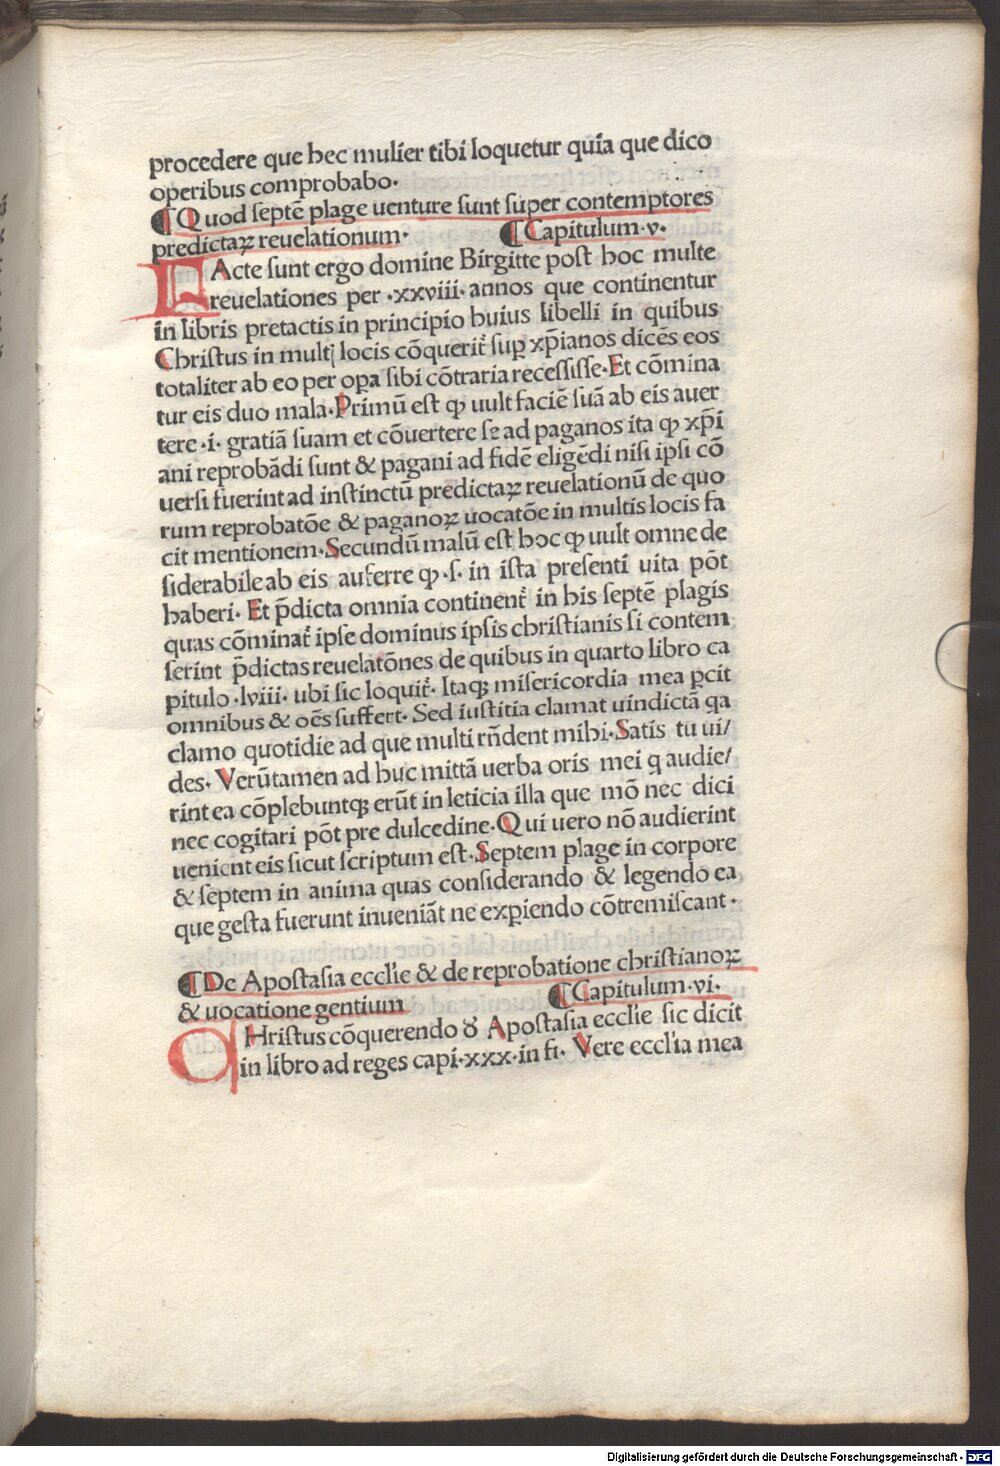 procedere que hec mulier tibi loquetur quia que dico
operibus comprobabo·
¶ Quod septē plage uenture sunt super contemptores
predictaꝝ reuelationum· ¶ Capitulum·v·
FActe sunt ergo domine Birgitte post hoc multe
reuelationes per ·xxviii· annos que continentur
in libris pretactis in principio huius libelli in quibus
Christus in multꝭ locis cōquerit᷑ suꝑ xp̄ianos dicēs eos
totaliter ab eo per oꝑa sibi cōtraria recessisse·Et cōmina
tur eis duo mala·Primū est ꝙ uult faciē suā ab eis auer
tere ·i· gratiā suam et cōuertere se ad paganos ita ꝙ xp̄i
ani reprobādi sunt & pagani ad fidē eligēdi nisi ipsi cō
uersi fuerint ad instinctū predictaꝝ reuelationū de quo
rum reprobatōe & paganoꝝ uocatōe in multis locis fa
cit mentionem·Secundū malū est hoc ꝙ uult omne de
siderabile ab eis auferre ꝙ ·s· in ista presenti uita pōt
haberi· Et p̄dicta omnia continent᷑ in his septē plagis
quas cōminat᷑ ipse dominus ipsis christianis si contem
serint p̄dictas reuelatōnes de quibus in quarto libro ca
pitulo ·lviii· ubi sic loquit᷑· Itaqꝫ misericordia mea ꝑcit
omnibus & oēs suffert· Sed iustitia clamat uindictā qa
clamo quotidie ad que multi rn̄dent mihi·Satis tu ui/
des· Verūtamen ad huc mittā uerba oris mei q audie/
rint ea cōplebuntqꝫ erūt in leticia illa que mō nec dici
nec cogitari pōt pre dulcedine·Qui uero nō audierint
uenient eis sicut scriptum est·Septem plage in corpore
& septem in anima quas considerando & legendo ea
que gesta fuerunt inueniāt ne exꝑiendo cōtremiscant·
¶ De Apostasia ecclīe & de reprobatione christianoꝝ
& uocatione gentium ¶ Capitulum·vi·
CHristus cōquerendo ꝺ Apostasia ecclie sic dicit
in libro ad reges capi·xxx·in fi· Vere eccl'ia mea
Digitalisierung gefördert durch die Deutsche Forschungsgemeinschaft · DFG